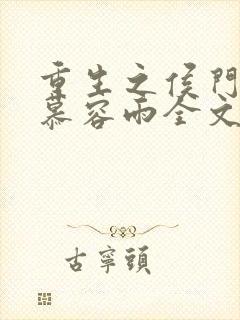 重生之侯門
慕容雨全文
古寧頭